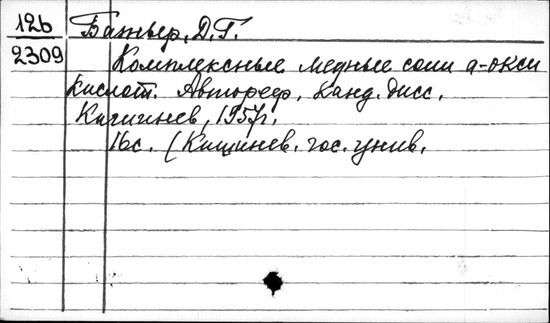 126 Батыр, Д.Г.
2309 Комплексные медные соли α-окси
кислот. Автореф. канд. дисс.
Кишинев, 1957г.
16с. (Кишинев. гос. унив.